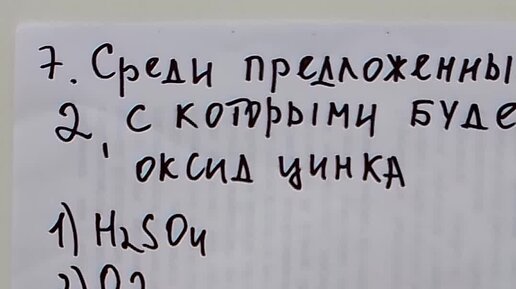 7. Среди предложенны
2, с которыми буде
оксид цинка
1) H2SO4
2) O2